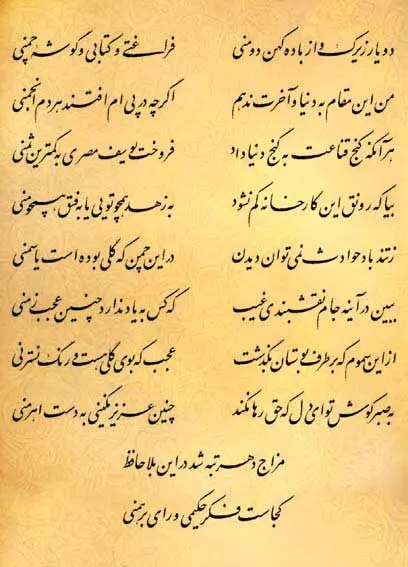 دو یار زیرک و از باده کهن دومنی فراغتی و کتابی و گوشه چمنی
من این مقام به دنیا و آخرت ندهم اگر چه در پی ام افتند هر دم انجمنی
هر آنکه کنج قناعت به گنج دنیا داد فروخت یوسف مصری به کمترین ثمنی
بیا که رونق این کارخانه کم نشود به زهد همچو تویی یا به فسق همچو منی
ز تند باد حوادث نمی توان دیدن در این چمن که گلی بوده است یا سمنی
ببین در آینه جام نقشبندی غیب که کس به یاد ندارد چنین عجب زمنی
از این سموم که بر طرف بوستان بگذشت عجب که بوی گلی هست و رنگ نسترنی
به صبر کوش تو ای دل که حق رها نکند چنین عزیز نگینی به دست اهرمنی
مزاج دهر تبه شد در این بلا حافظ
کجاست فکر حکیمی و رای برهمنی